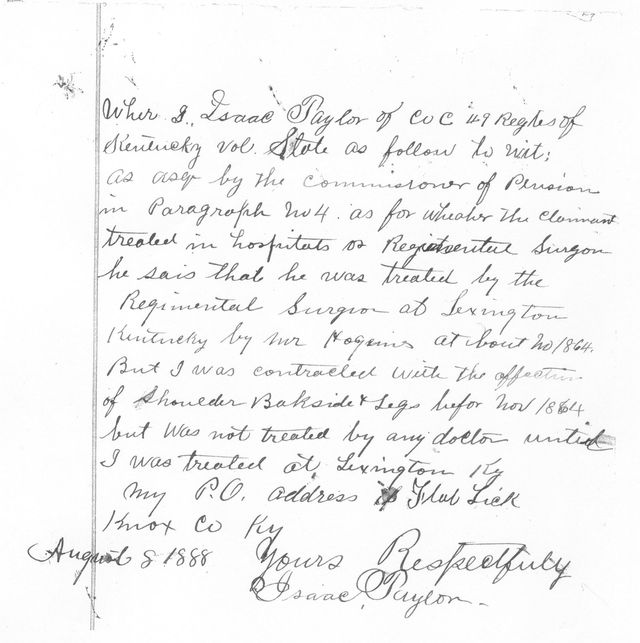 Wher I, Isaac Taylor of Co C 49 Regtes of
Kentucky Vol. State as follow to wit;
as asq by the commissioner of Pension
in Paragraph No 4. as for wheather the claimant
treated in hospitals or Regimental Surgon
he sais that he was treated by the
Regimental Surgeon at Lexington
Kentucky by Mr at bout No 1864.
But I was contracted with the affection
of Shoulder Bakside & Legs befor Nov 1864
but was not treated by any doctor untiel
I was treated at Lexington Ky
My P.O. address is Flat Lick
Knox Co Ky
August 8 1888 Yours Respectfuly
Isaac Taylor